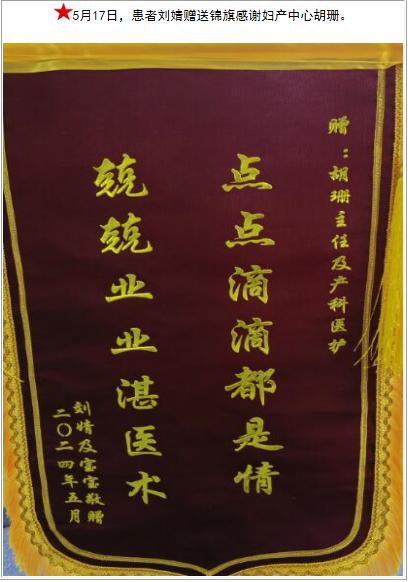 ★5月17日，患者刘婧赠送锦旗感谢妇产中心胡珊。
赠：胡珊主任及产科医护
点点滴滴都是情
兢兢业业湛医术
刘婧及宝宝敬赠
二〇二四年五月